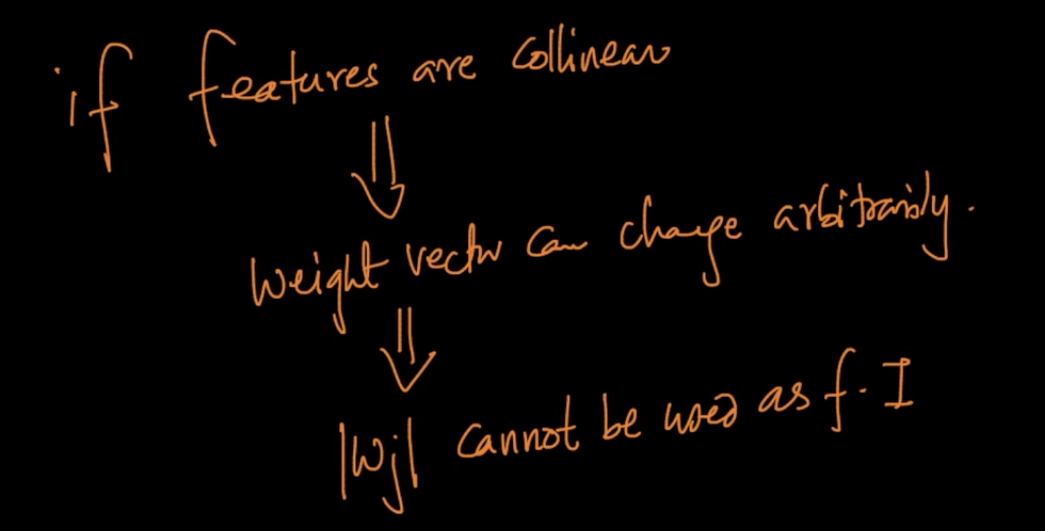 if features are collinear
⇓
weight vector can change arbitrarily.
⇓
|Wj| cannot be used as f.I